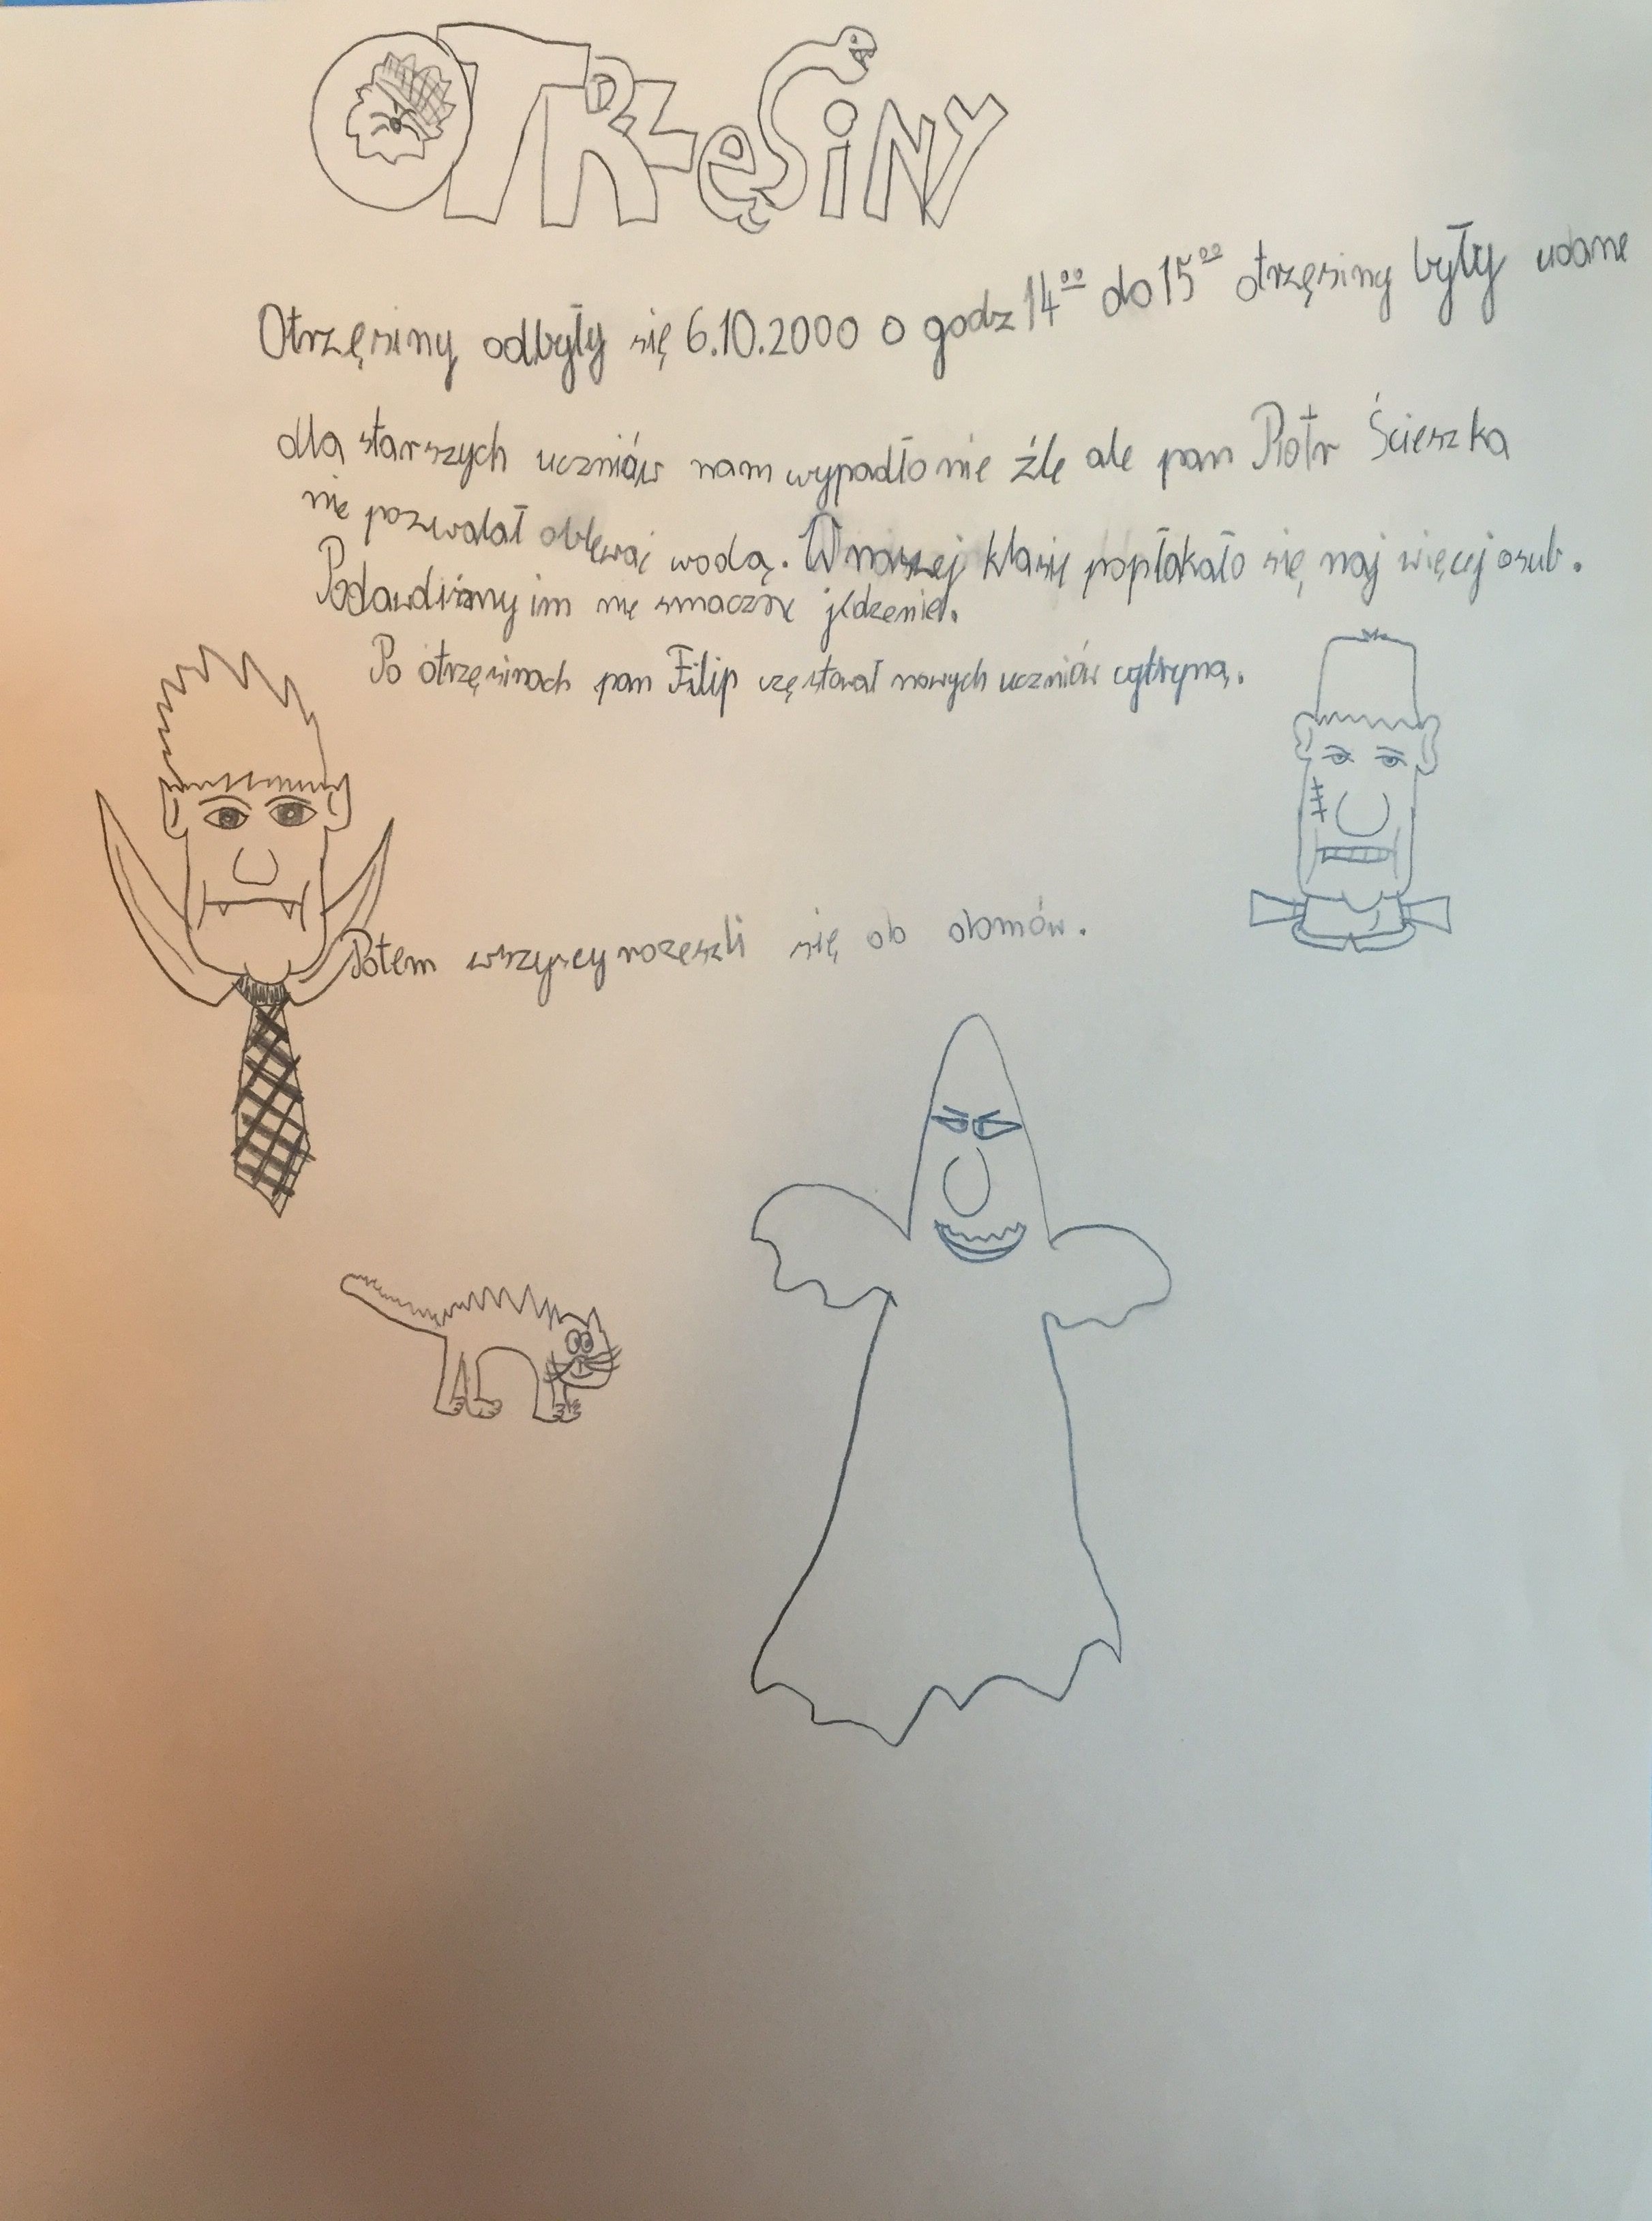 OTRZĘSiNY
Otrzęsiny odbyły się 6.10.2000 o godz 14⁰⁰ do 15⁰⁰ otrzęsiny były udane
dla starszych uczniów nam wypadło nie źle ale pan Piotr Ścieszka
nie pozwalał oblewać wodą. W naszej klasie popłakało się naj więcej osub.
Podawaliśmy im nie smaczne jedzenie.
Po otrzęsinach pan Filip częstował nowych uczniów cytryną.
Potem wszyscy rozeszli się do domów.